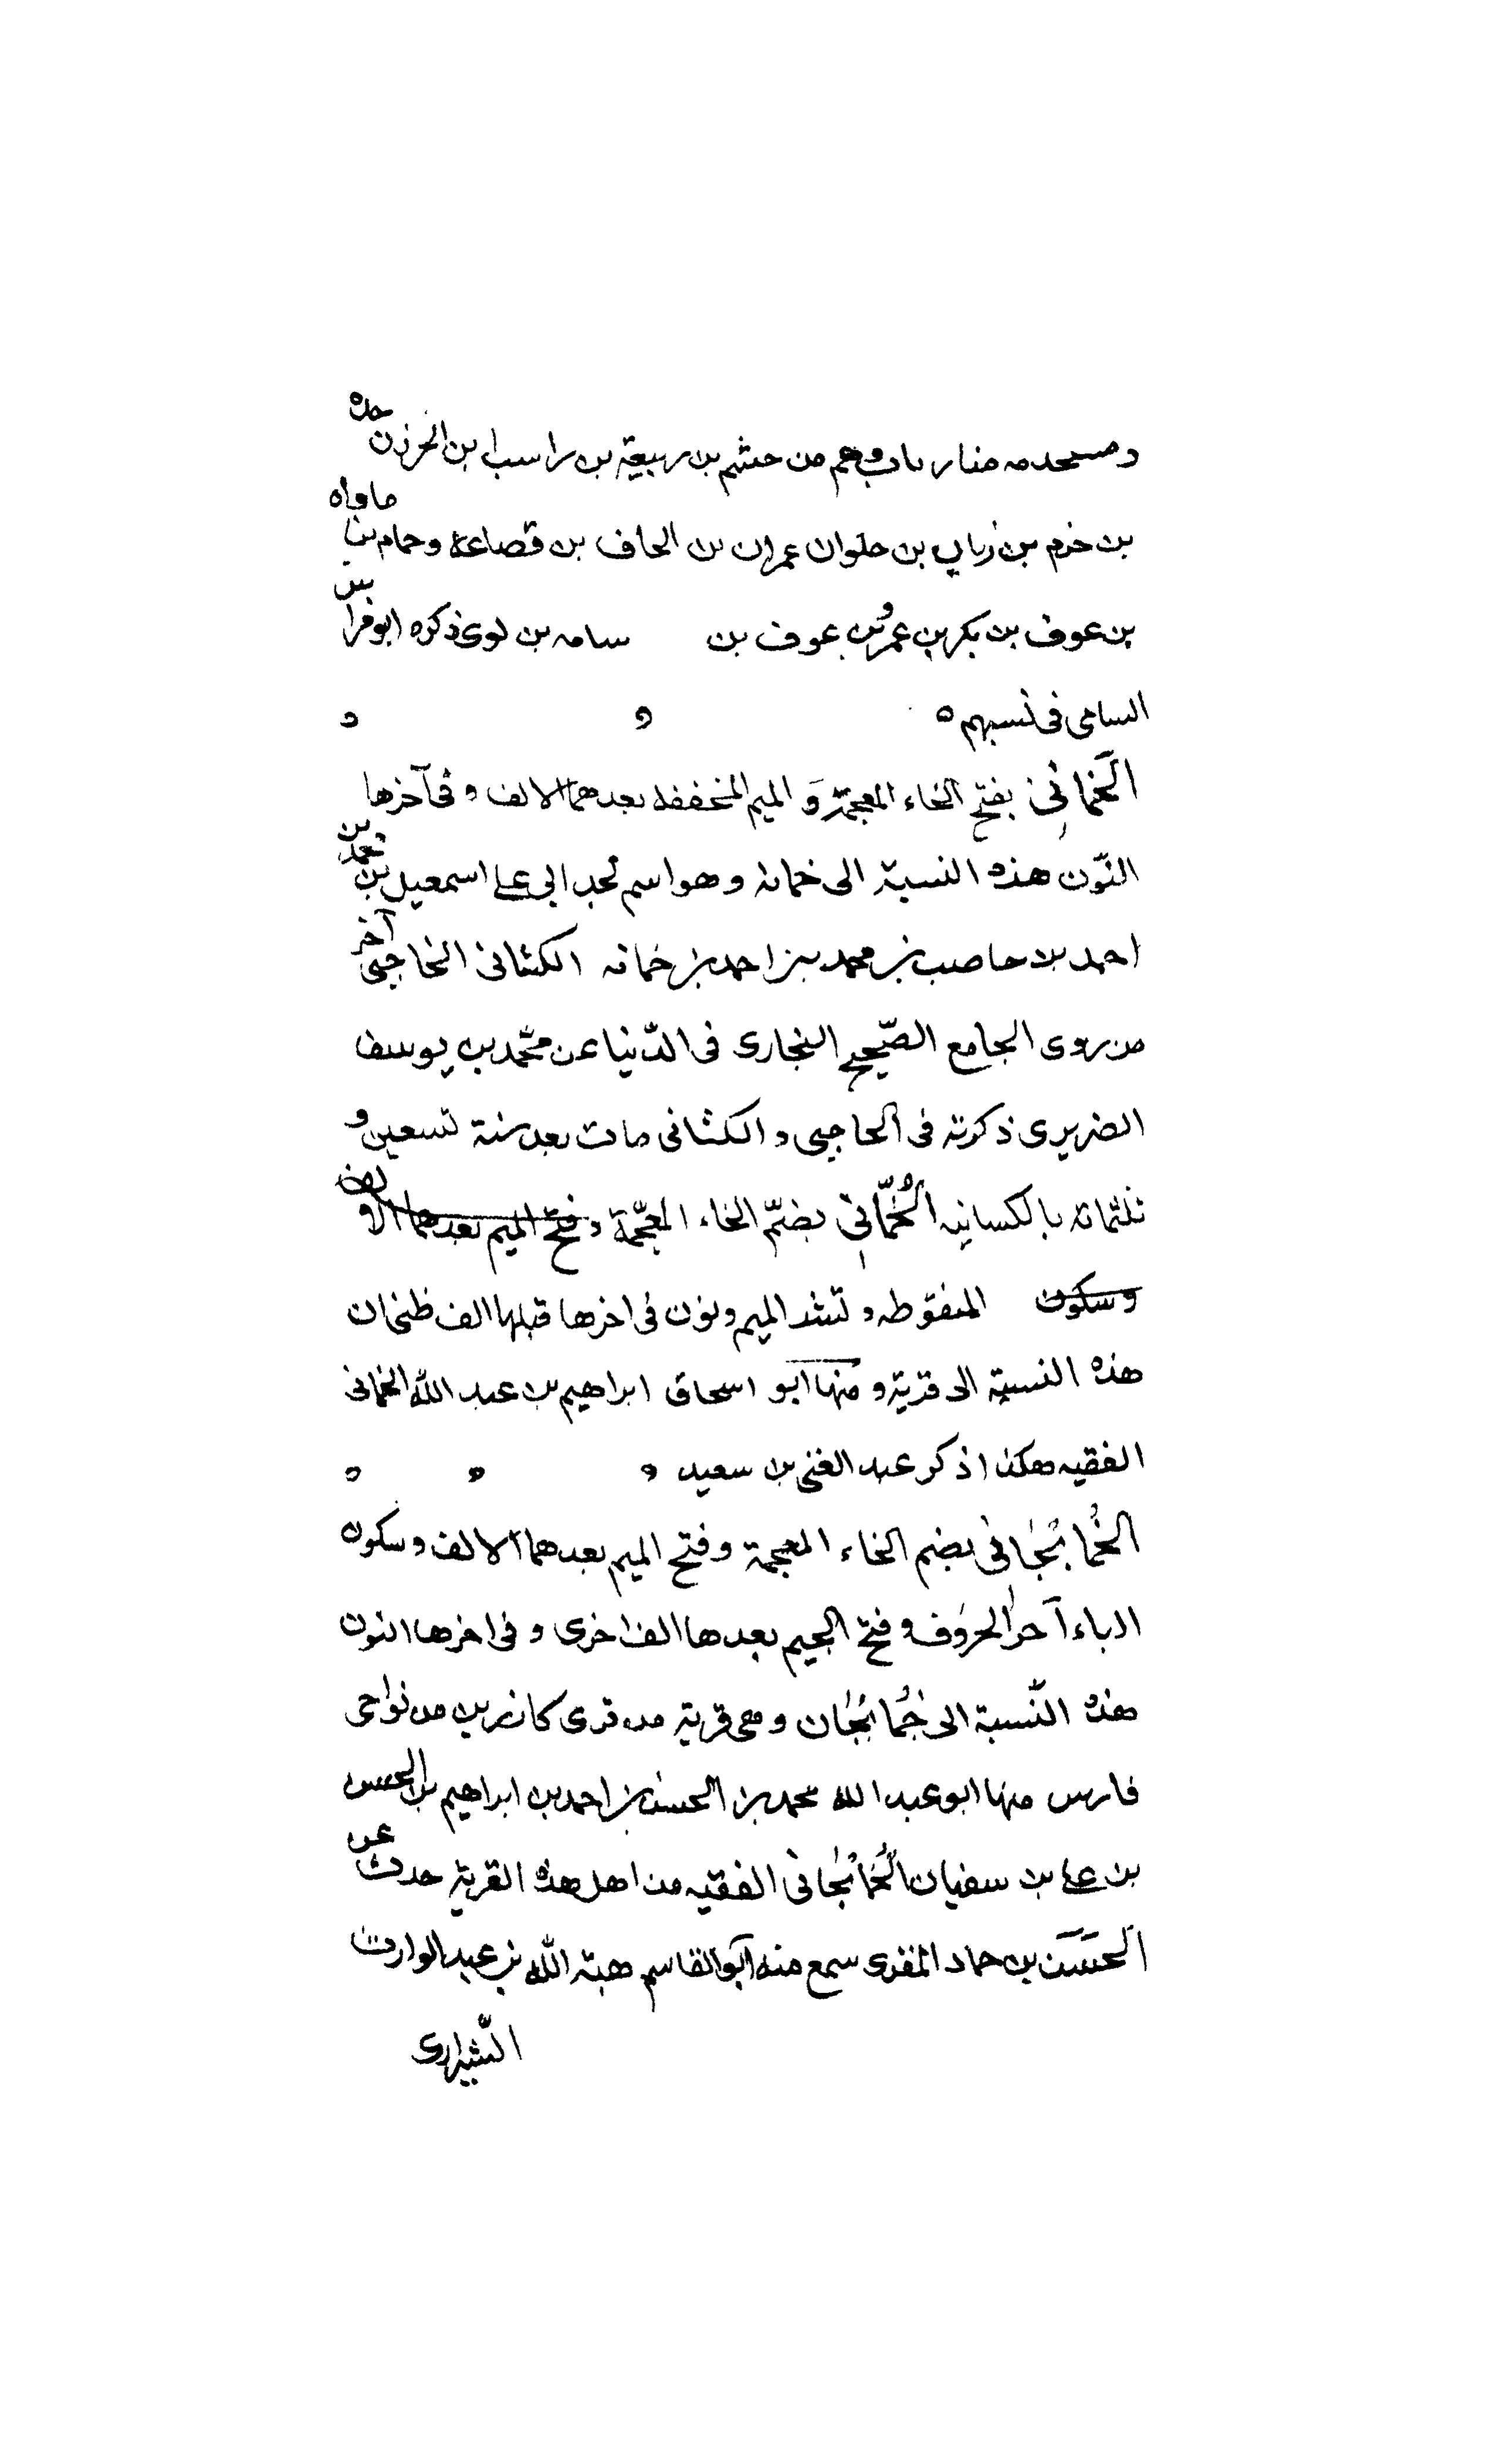 ومسجدمه منار باب وهم من حشم بن ربيعة بن راسب ابن الخزن حده
بن خرم بن زبان بن حلوان عمران بن الحاف بن قضاعة وحمام بن ماواه
بن عوف بن بكر بن عمرو بن عوف بن سامه بن لوى ذكره ابو فراس
السامى فى نسبهم ه
الخَمانِى بفتح الخاء المعجمة وَ الميم المخففه بعدهما الالف و فى آخرها
النّون هذه النسبة الى خمانه وهو اسم لجد ابى على اسمعيل بن محمد بن
احمد بن حاصب بن محمد بن احمد بن خمانه الكشانى الخاجبى آخر
من روى الجامع الصّحيح البخارى فى الدّنيا عن محمّد بن يوسف
الضريرى ذكرته فى الحاجبى و الكشانى مات بعد سنة تسعين و
ثلثمائه بالكسانيه الخُمّانِى بضمّ الخاء المعجّمة و فتح الميم بعدهما الالف
وسكون المنقوطه و تشد الميم ونون فى اخرها قبلها الف ظنخان
هذه النسبة الى قرية و منها ابو اسحاق ابراهيم بن عبد الله الخمانى
الفقيه هكذا ذكر عبد الغنى بن سعيد
الخُمايْجانى بضم الخاء المعجمة وفتح الميم بعدهما الالف وسكون
الياء آخر الحروف و فتح الجيم بعدها الف اخرى و فى اخرها النون
هذه النّسبة الى خُمايْجان وهى قرية من قرى كازرين من نواحى
فارس منها ابو عبد الله محمد بن الحسن بن احمد بن ابراهيم بن الحسن
بن على بن سفيان الخُمايْجانى الفقيه من اهل هذه القرية حدث عن
الحسَن بن حماد المقرى سمع منه ابو القاسم هبة الله بن عبد الوارث
الشّيرازى